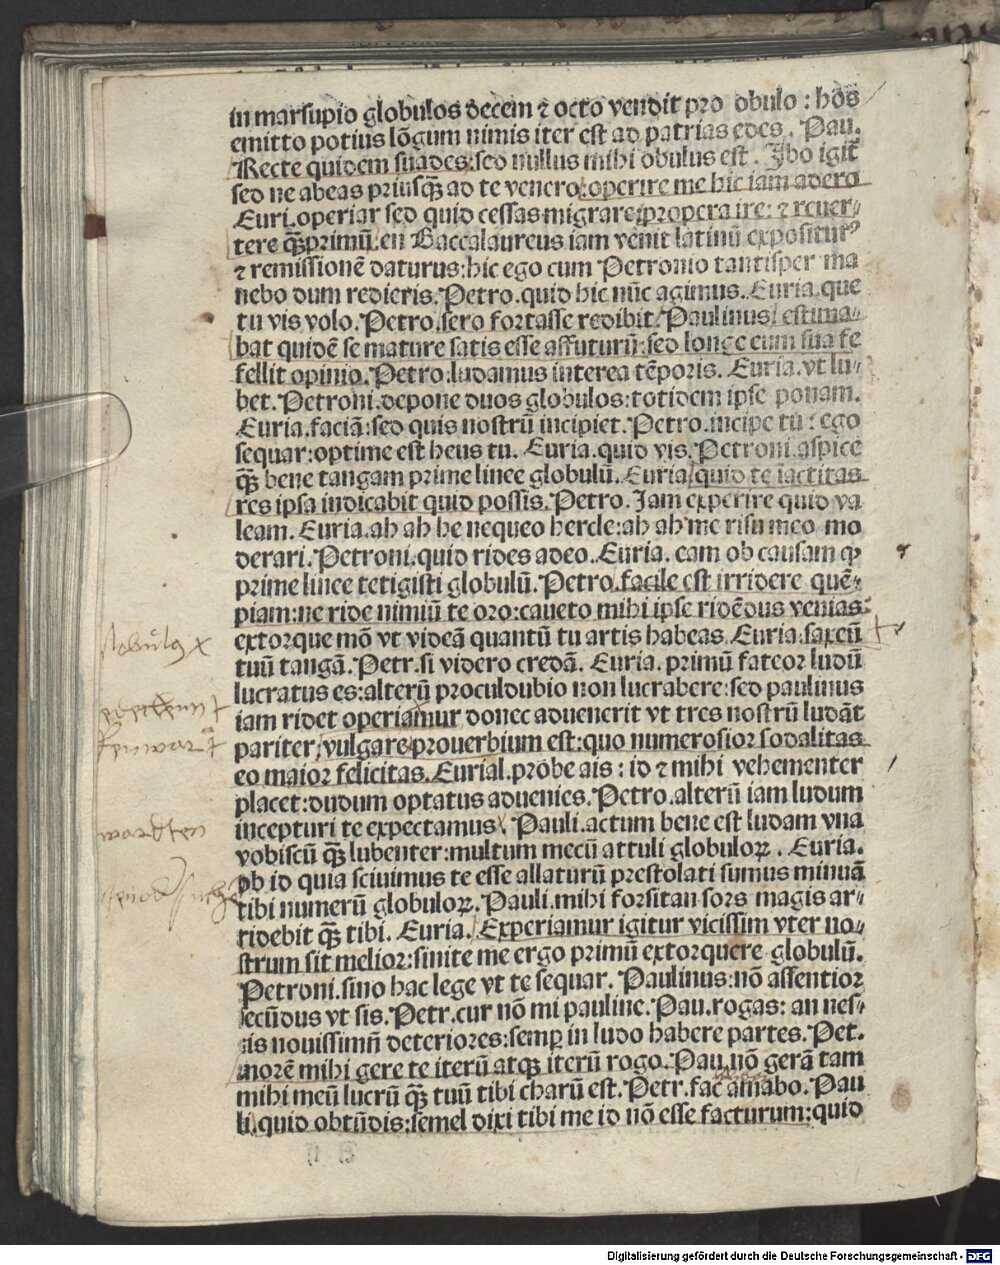 in marsupio globulos decem ⁊ octo vendit pro obulo : hos
emitto potius lõgum nimis iter est ad patrias edes . Pau.
Recte quidem suades:sed nullus mihi obulus est . Ibo igit̃
sed ne abeas priusq̃ ad te venero:operire me hic iam adero
Euri.operiar sed quid cessas migrare:propera ire: ⁊ reuer-
tere q̃primũ:en Baccalaureus iam venit latinũ expositurꝰ
⁊ remissionẽ daturus:hic ego cum Petronio tantisper ma
nebo dum redieris.Petro.quid hic nũc agimus.Euria.que
tu vis volo.Petro.sero fortasse redibit.Paulinus estima-
bat quidẽ se mature satis esse affuturũ:sed longe eum sua fe
fellit opinio.Petro.ludamus interea tẽporis. Euria.vt lu-
bet.Petroni.depone duos globulos:totidem ipse ponam.
Euria.faciã:sed quis nostrũ incipiet.Petro.incipe tu : ego
sequar:optime est heus tu. Euria.quid vis.Petroni.aspice
q̃ bene tangam prime linee globulũ.Euria.quid te iactitas
res ipsa indicabit quid possis.Petro. Iam experire quid va
leam.Euria.ah ah he nequeo hercle:ah ah me risu meo mo
derari.Petroni.quid rides adeo.Euria. eam ob causam ꝙ
prime linee tetigisti globulũ.Petro.facile est irridere quẽ-
piam:ne ride nimiũ te oro:caueto mihi ipse ridẽdus venias:
extorque mõ vt videã quantũ tu artis habeas.Euria.saxeũ
tuũ tangã.Petr.si videro credã. Euria. primũ fateor ludũ
lucratus es:alterũ proculdubio non lucrabere:sed paulinus
iam ridet operiamur donec aduenerit vt tres nostrũ ludãt
pariter:vulgare prouerbium est:quo numerosior sodalitas
eo maior felicitas.Eurial.probe ais : id ⁊ mihi vehementer
placet:dudum optatus aduenies.Petro.alterũ iam ludum
incepturi te expectamus. Pauli.actum bene est ludam vna
vobiscũ q̃ lubenter:multum mecũ attuli globuloꝝ . Euria.
ob id quia sciuimus te esse allaturũ prestolati sumus minuã
tibi numerũ globuloꝝ.Pauli.mihi forsitan sors magis ar-
ridebit q̃ tibi. Euria. Experiamur igitur vicissim vter no-
strum sit melior:sinite me ergo primũ extorquere globulũ.
Petroni.sino hac lege vt te sequar. Paulinus:nõ assentior
secũdus vt sis.Petr.cur nõ mi pauline.Pau.rogas: an nes-
cis nouissimũ deteriores:semꝑ in ludo habere partes.Pet.
morẽ mihi gere te iterũ atqꝫ iterũ rogo.Pau.nõ gerã tam
mihi meũ lucrũ q̃ tuũ tibi charũ est.Petr.fac amabo.Pau
li.quid obtũdis:semel dixi tibi me id nõ esse facturum:quid
wardten
Digitalisierung gefördert durch die Deutsche Forschungsgemeinschaft - DFG